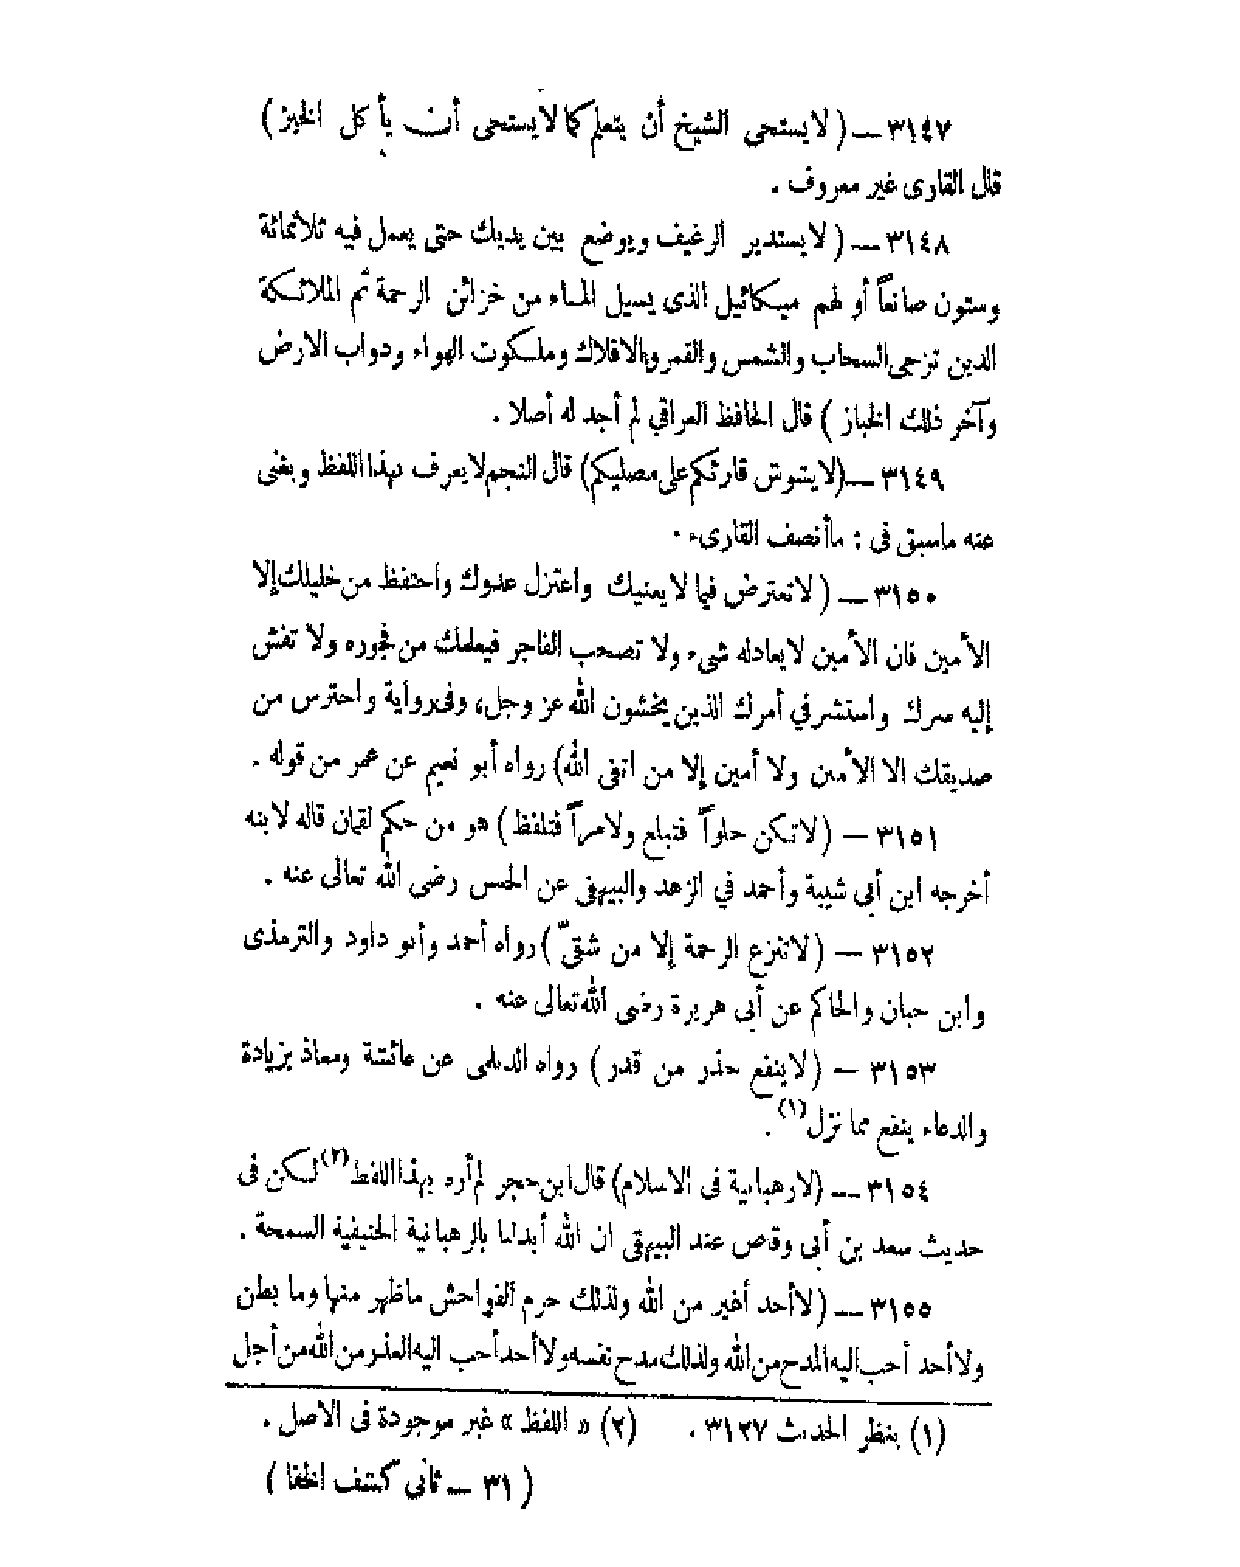 ٣١٤٧ — ( لا يستحى الشيخ أن يتعلم كما لا يستحى أن يأكل الخبز )
قال القارى غير معروف .
٣١٤٨ — ( لا يستدير الرغيف ويوضع بين يديك حتى يعمل فيه ثلاثمائة
وستون صانعاً أو لهم ميكائيل الذى يسيل الماء من خزائن الرحمة ثم الملائكة
الذين تزجى السحاب والشمس والقمر والافلاك وملكوت الهواء ودواب الارض
وآخر ذلك الخباز ) قال الحافظ العراقي لم أجد له أصلا .
٣١٤٩ — (لا يشوش قارئكم على مصليكم) قال النجم لا يعرف بهذا اللفظ ويغنى
عنه ماسبق فى : ما أنصف القارىء .
٣١٥٠ — ( لا تعترض فيما لا يعنيك واعتزل عدوك واحتفظ من خليلك إلا
الأمين فان الأمين لا يعادله شىء ولا تصحب الفاجر فيعلمك من فجوره ولا تفش
إليه سرك واستشر في أمرك الذين يخشون الله عز وجل، وفى رواية واحترس من
صديقك الا الأمين ولا أمين إلا من اتقى الله) رواه أبو نعيم عن عمر من قوله .
٣١٥١ — ( لا تكن حلواً فتبلع ولا مراً فتلفظ ) هو من حكم لقمان قاله لابنه
أخرجه ابن أبى شيبة وأحمد في الزهد والبيهقى عن الحسن رضى الله تعالى عنه .
٣١٥٢ — ( لا تنزع الرحمة إلا من شقىّ ) رواه أحمد وأبو داود والترمذى
وابن حبان والحاكم عن أبى هريرة رضى الله تعالى عنه .
٣١٥٣ — ( لا ينفع حذر من قدر ) رواه الديلمى عن عائشة ومعاذ بزيادة
والدعاء ينفع مما نزل(١) .
٣١٥٤ — (لا رهبانية فى الاسلام) قال ابن حجر لم أره بهذا اللفظ(٢) لكن فى
حديث سعد بن أبى وقاص عند البيهقى ان الله أبدلنا بالرهبانية الحنيفية السمحة .
٣١٥٥ — ( لا أحد أغير من الله ولذلك حرم الفواحش ماظهر منها وما بطن
ولا أحد أحب اليه المدح من الله ولذلك مدح نفسه ولا أحد أحب اليه العذر من الله من أجل
(١) ينظر الحديث ٣١٣٧ . (٢) « اللفظ » غير موجودة فى الاصل .
( ٣١ — ثانى كشف الخفا )